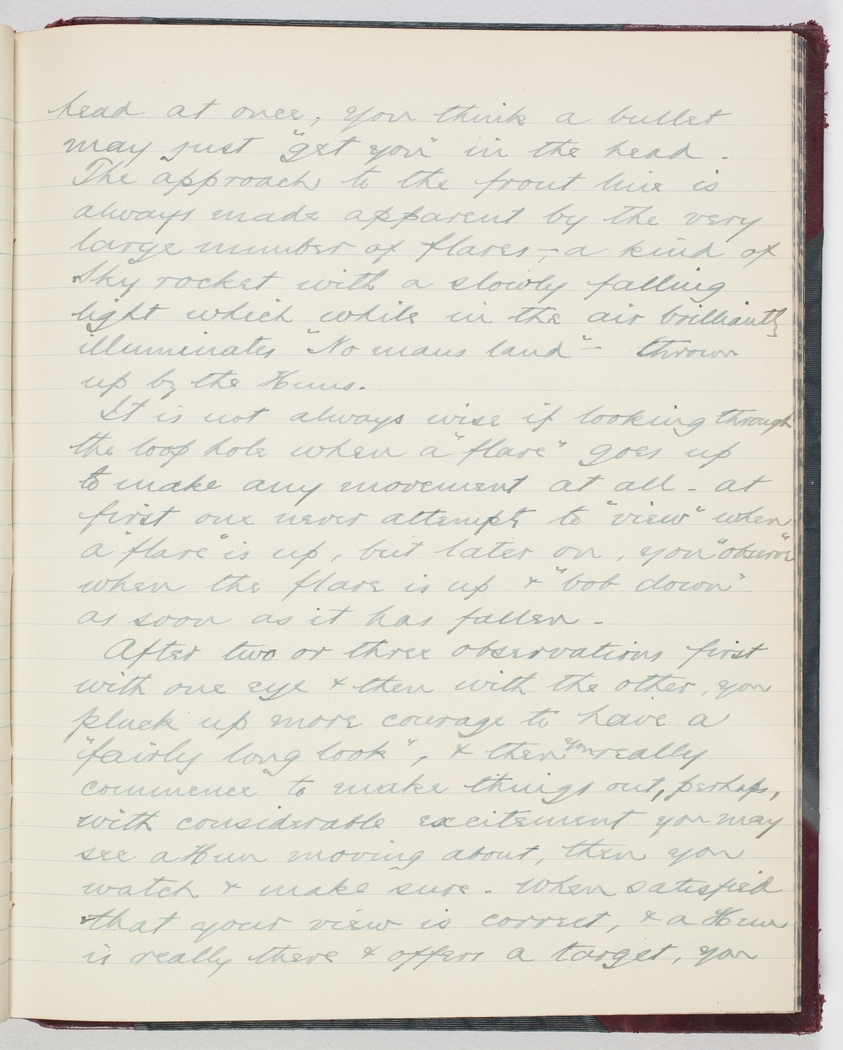 head at once, you think a bullet
may just "get you" in the head.
The approach to the front line is
always made apparent by the very
large number of flares, - a kind of
sky rocket with a slowly falling
light which while in the air brilliantly
illuminates "No mans land" - thrown
up by the Huns.
It is not always wise if looking through
the loop hole when a "flare" goes up
to make any movement at all - at
first one never attempts to "view" when
a "flare" is up, but later on, you "observe"
when the flare is up & "bob down"
as soon as it has fallen -
After two or three observations first
with one eye & then with the other, you
pluck up more courage to have a
"fairly long look", & then you really
commence to make things out, perhaps,
with considerable excitement you may
see a Hun moving about, then you
watch & make sure. When satisfied
that your view is correct, & a Hun
is really there & offers a target, you